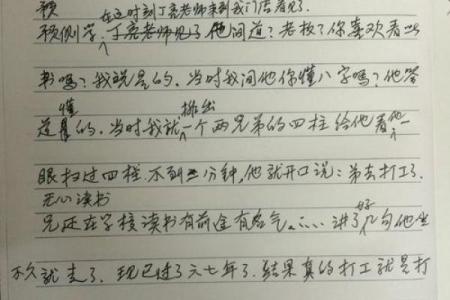 预 在这时刻丁亮老师来到我门店看见了.
预侧学,丁亮老师见了他间道?老板?你喜欢看此
书吗?我说是的,当时我间他你懂八字吗?他答
懂 排出
道是的,当时我就一个两兄弟的四柱给他看他一
眼扫过四柱.不到一分钟,他就开口说:弟去打工了.
无心读书
兄还在学校读书有前途有名气......讲了几句他坐
好
不久就走了.现已过了六七年了.结果真的打工就是打